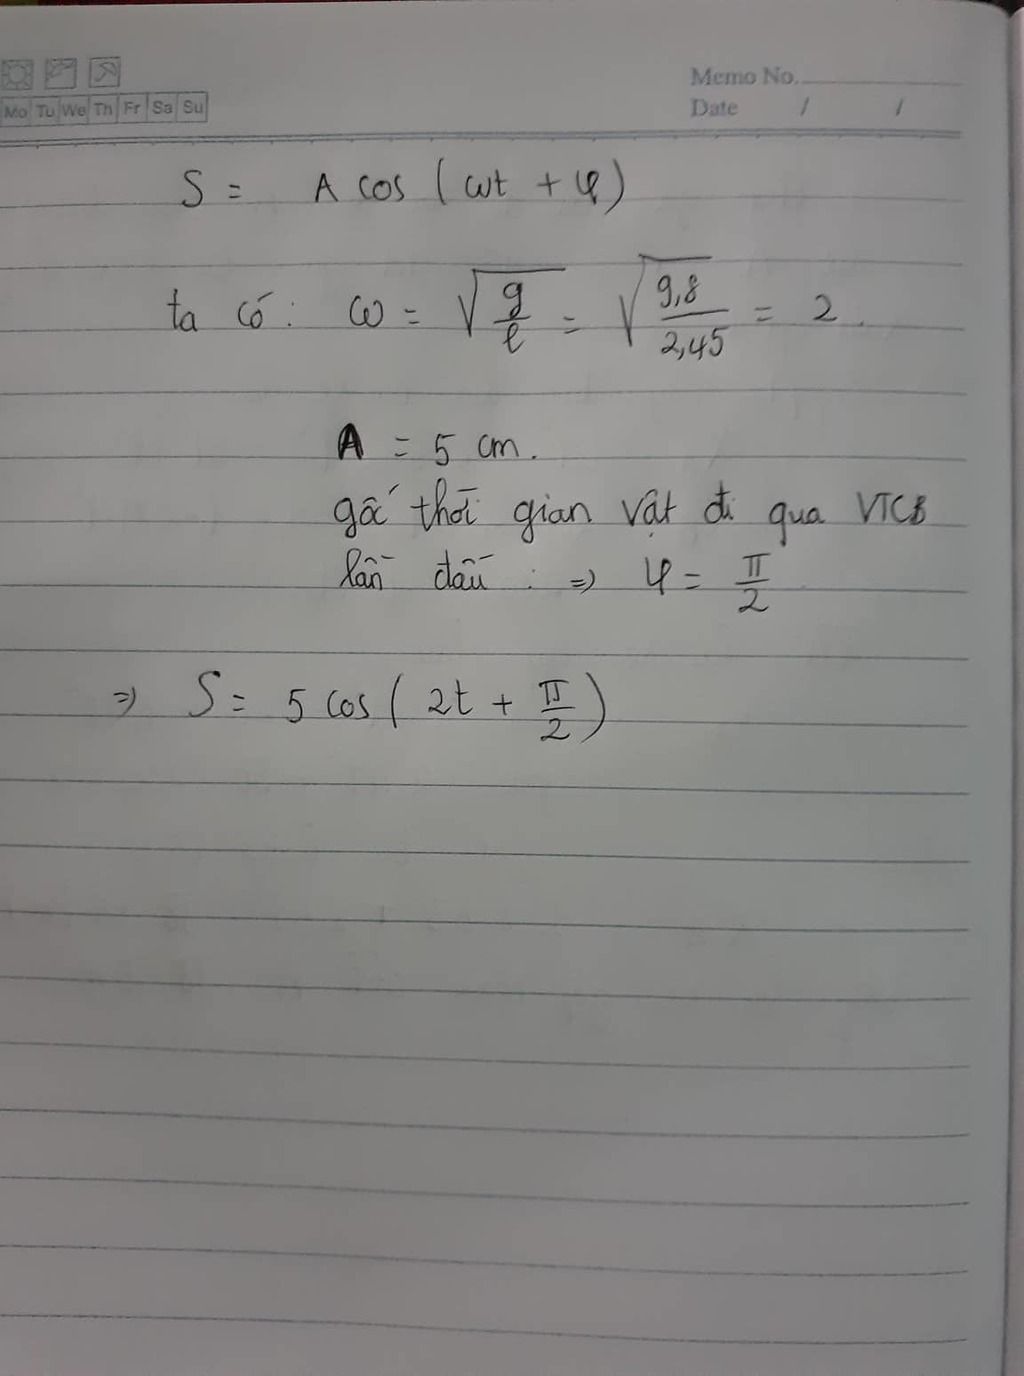 Memo No.
Mo Tu We Th Fr Sa Su
Date / /
S = A cos (ωt + φ)
ta có: ω = √(g/l) = √(9,8/2,45) = 2.
A = 5 cm.
gốc thời gian vật đi qua VTCB
lần đầu : => φ = π/2
=> S = 5 cos (2t + π/2)